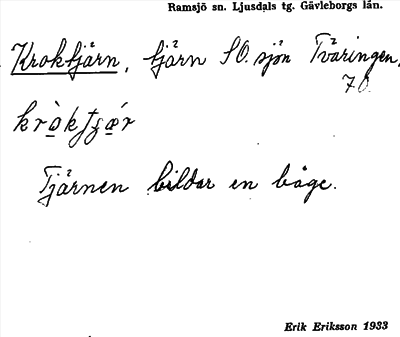 Ramsjö sn. Ljusdals tg. Gävleborgs län.
Kroktjärn, tjärn SO. sjön Tväringen.
70.
Tjärnen bildar en båge.
Erik Eriksson 1933